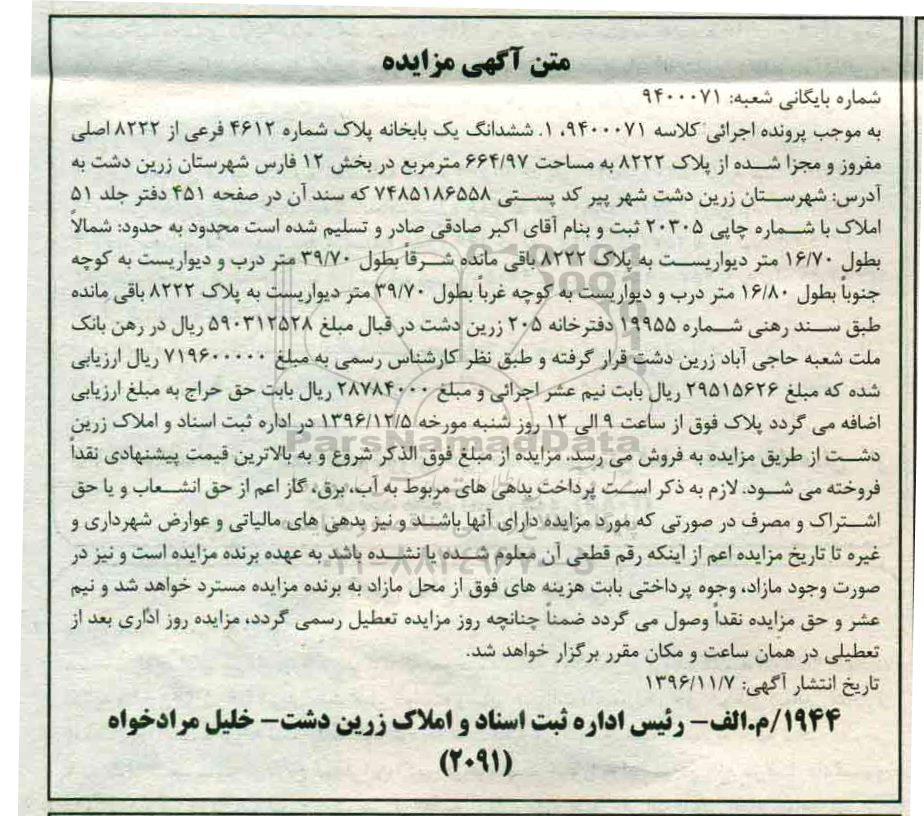 متن آگهی مزایده
شماره بایگانی شعبه: ۹۴۰۰۰۷۱
به موجب پرونده اجرائی کلاسه ۹۴۰۰۰۷۱، ۱. ششدانگ یک بابخانه پلاک شماره ۴۶۱۲ فرعی از ۸۲۲۲ اصلی
مفروز و مجزا شده از پلاک ۸۲۲۲ به مساحت ۶۶۴/۹۷ مترمربع در بخش ۱۲ فارس شهرستان زرین دشت به
آدرس: شهرستان زرین دشت شهر پیر کد پستی ۷۴۸۵۱۸۶۵۵۸ که سند آن در صفحه ۴۵۱ دفتر جلد ۵۱
املاک با شماره چاپی ۲۰۳۰۵ ثبت و بنام آقای اکبر صادقی صادر و تسلیم شده است محدود به حدود: شمالاً
بطول ۱۶/۷۰ متر دیواریست به پلاک ۸۲۲۲ باقی مانده شرقاً بطول ۳۹/۷۰ متر درب و دیواریست به کوچه
جنوباً بطول ۱۶/۸۰ متر درب و دیواریست به کوچه غرباً بطول ۳۹/۷۰ متر دیواریست به پلاک ۸۲۲۲ باقی مانده
طبق سند رهنی شماره ۱۹۹۵۵ دفترخانه ۲۰۵ زرین دشت در قبال مبلغ ۵۹۰۳۱۲۵۲۸ ریال در رهن بانک
ملت شعبه حاجی آباد زرین دشت قرار گرفته و طبق نظر کارشناس رسمی به مبلغ ۷۱۹۶۰۰۰۰۰ ریال ارزیابی
شده که مبلغ ۲۹۵۱۵۶۲۶ ریال بابت نیم عشر اجرائی و مبلغ ۲۸۷۸۴۰۰۰ ریال بابت حق حراج به مبلغ ارزیابی
اضافه می گردد پلاک فوق از ساعت ۹ الی ۱۲ روز شنبه مورخه ۱۳۹۶/۱۲/۵ در اداره ثبت اسناد و املاک زرین
دشت از طریق مزایده به فروش می رسد. مزایده از مبلغ فوق الذکر شروع و به بالاترین قیمت پیشنهادی نقداً
فروخته می شود. لازم به ذکر است پرداخت بدهی های مربوط به آب، برق، گاز اعم از حق انشعاب و یا حق
اشتراک و مصرف در صورتی که مورد مزایده دارای آنها باشند و نیز بدهی های مالیاتی و عوارض شهرداری و
غیره تا تاریخ مزایده اعم از اینکه رقم قطعی آن معلوم شده یا نشده باشد به عهده برنده مزایده است و نیز در
صورت وجود مازاد، وجوه پرداختی بابت هزینه های فوق از محل مازاد به برنده مزایده مسترد خواهد شد و نیم
عشر و حق مزایده نقداً وصول می گردد ضمناً چنانچه روز مزایده تعطیل رسمی گردد، مزایده روز اداری بعد از
تعطیلی در همان ساعت و مکان مقرر برگزار خواهد شد.
تاریخ انتشار آگهی: ۱۳۹۶/۱۱/۷
۱۹۴۴/م.الف- رئیس اداره ثبت اسناد و املاک زرین دشت- خلیل مرادخواه
(۲۰۹۱)
ParsNamadData
۰۲۱-۸۸۳۴۹۶۷۰-۵